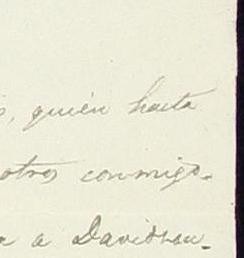 , quién hasta
otros conmigo.
a a Davidson.